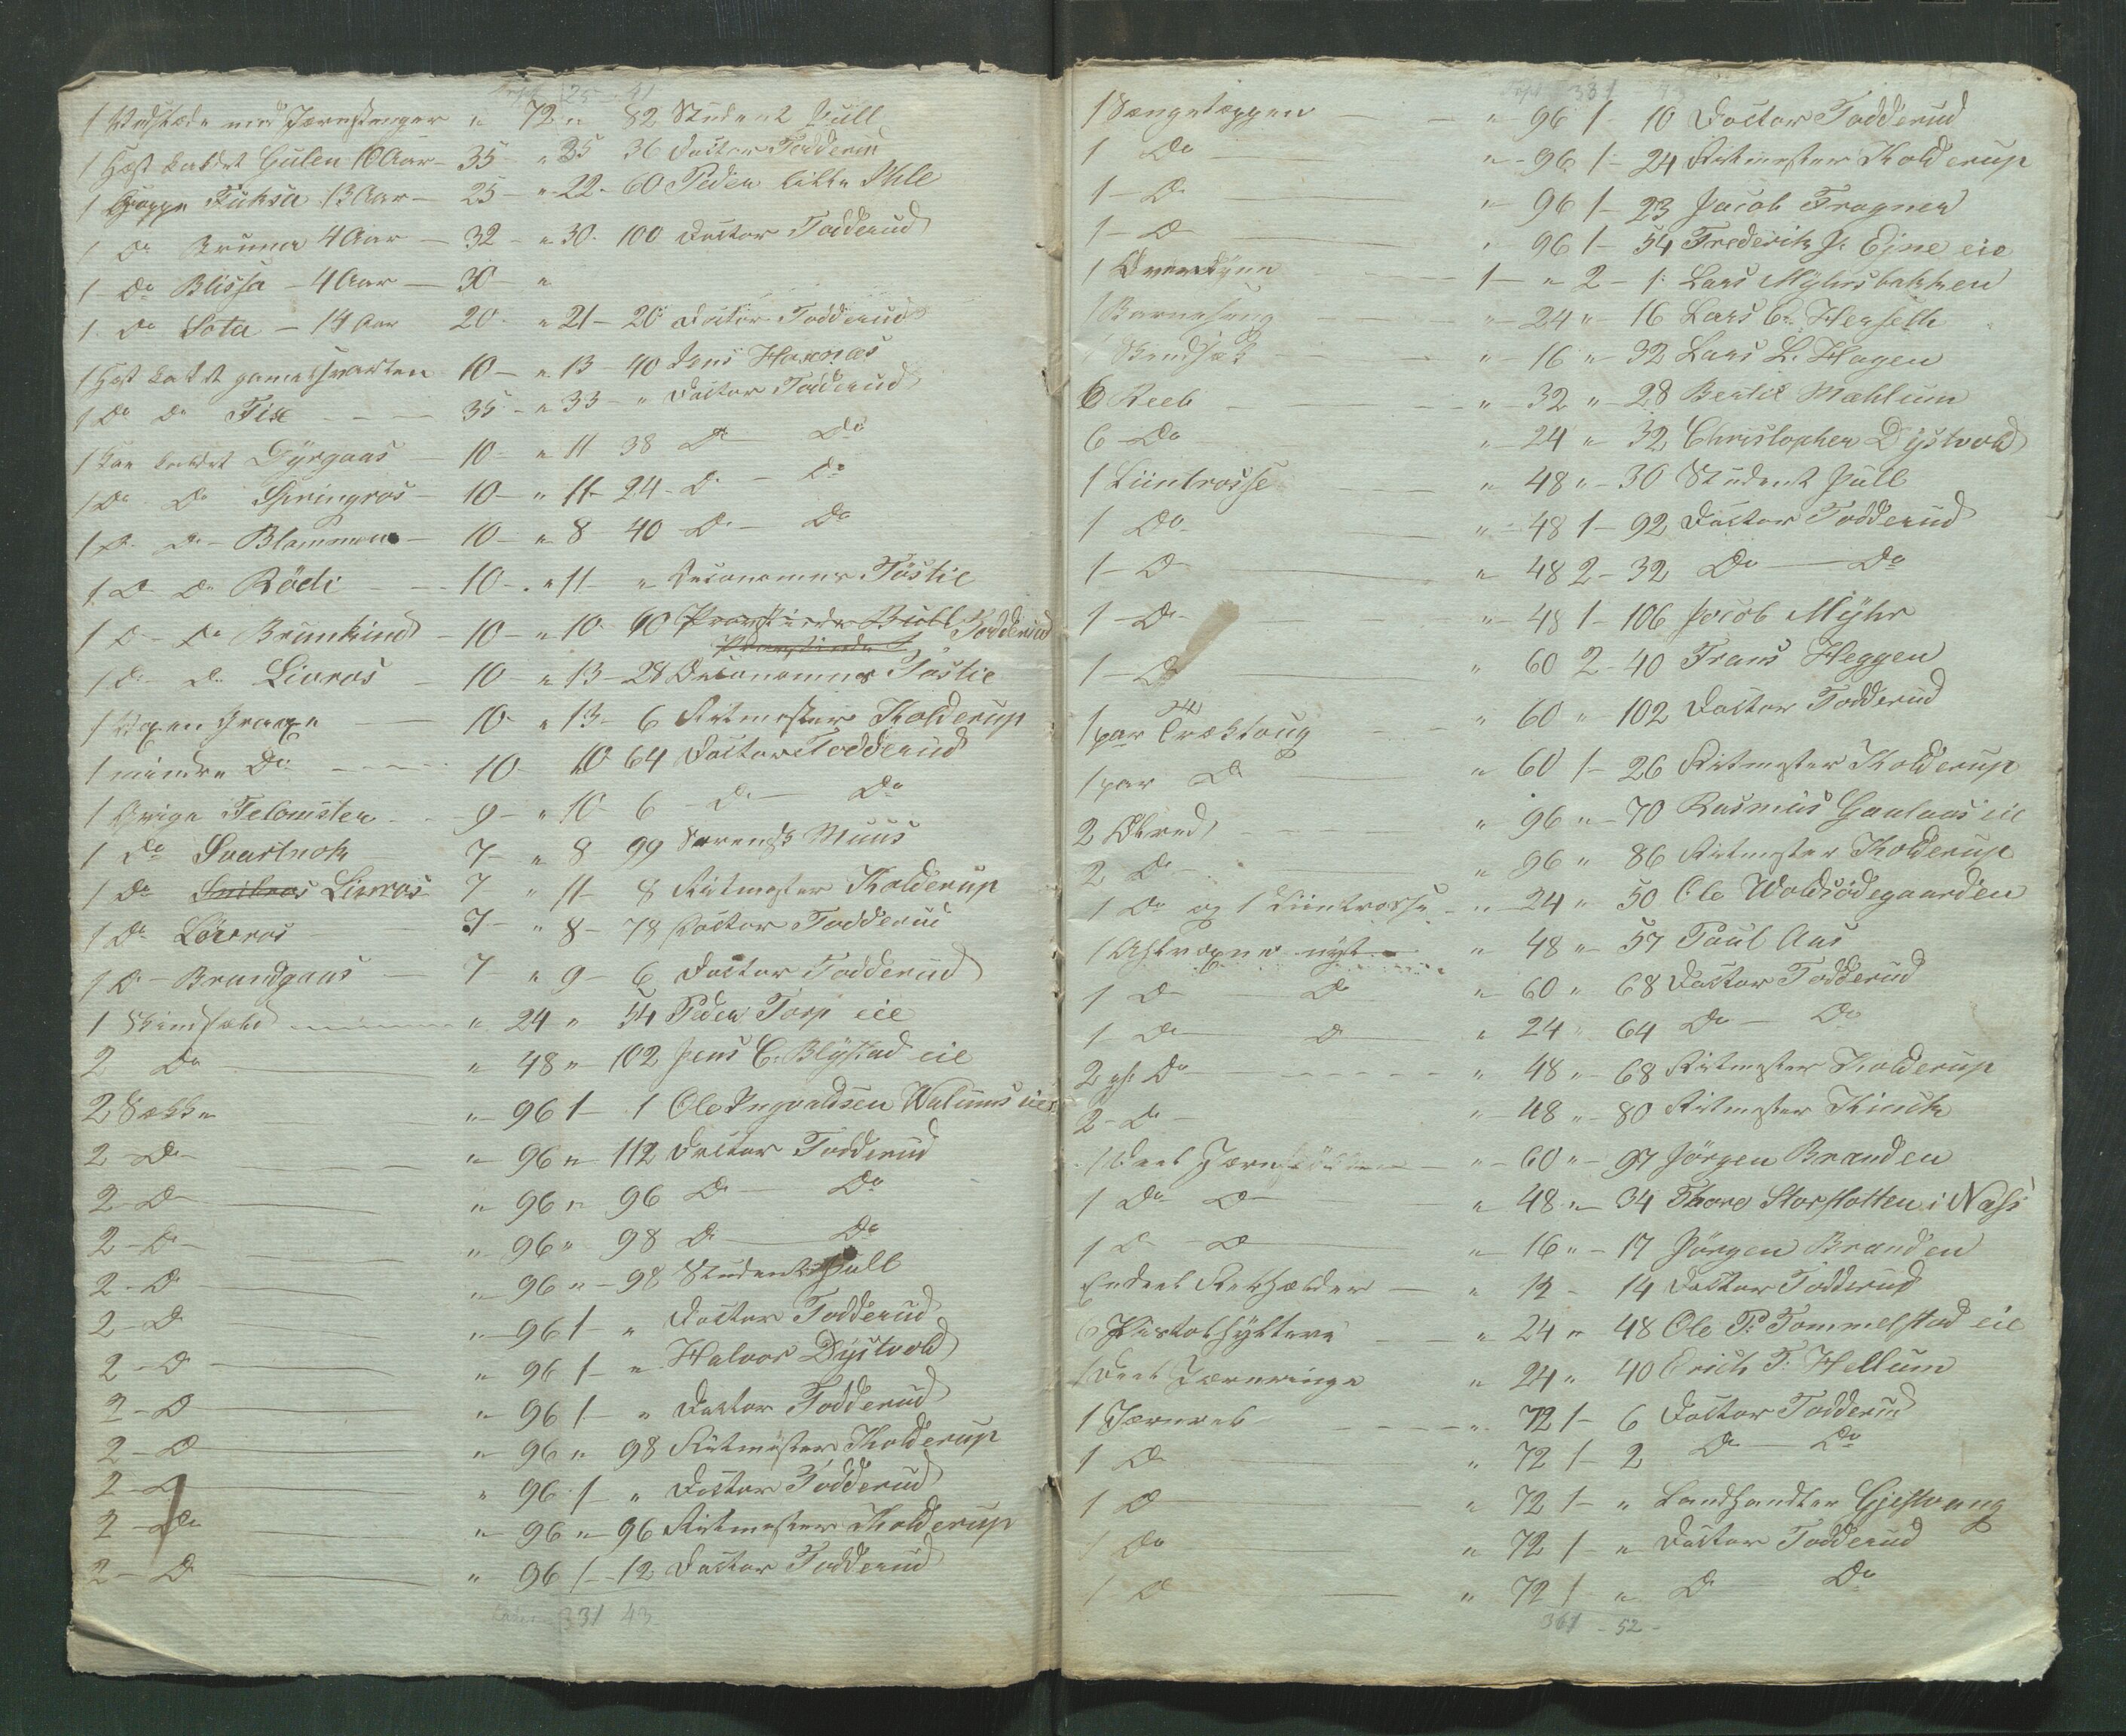 1 med Jærnstænger " 72 " 82 Student Juell
1 Hest kaldet Gulen 10 Aar - 35 - " 35 36 Doctor Todderud
1 Hoppe Fuksa 13 Aar - 25 - " 22 - 60 Peder lille Ihle
1 Do Bruna 4 Aar - 32 - " 30 - 100 Doctor Todderud
1 Do Blissa - 4 Aar - 30 - "
1 Do Sota - 14 Aar 20 - " 21 - 20 Doctor Todderud
1 Hest kaldet gamelsvarten 10 - " 13 - 40 Jens Hoxnæs
1 Do Do Fix - - 35 - " 33 - " Doctor Todderud
1 Koe kaldet Dyrgaas - 10 - " 11 38 Do Do
1 Do Do Springros - 10 - " 11 - 24 - Do - Do
1 Do Do - Blommen - 10 - " 8 - 40 Do - Do
1 Do Do Rödli - - 10 - " 11 - " Oeconomus Töstie
1 Do - Do Brunkind - 10 - " 10 - 90 Bull Todderud
1 Do - Do Livros - 10 - " 13 - 28 Oeconomus Töstie
1 - 10 - " 13 - 6 Ritmester Kolderup
1 mindre Do - - - 10 - 10 64 Doctor Todderud
1 Qvige Telomsten - - 9 - " 10 - 6 - Do - Do
1 Do Svartnok 7 - " 8 99 Muus
1 Do Livros 7 " 11 - 8 Ritmester Kolderup
1 Do Lövros 7 - " 8 - 78 Doctor Todderud
1 Do - Brandgaas - 7 " 9 - 6 Doctor Todderud
1 Skindfeld " 24 " 54 Peder Torp eie
2 Do " 48 " 102 Jens C. Blystad eie
2 Sække " 96 1 - 1 Ole Ingvaldsen eie
2 - Do " 96 " 112 Doctor Todderud
2 - Do " 96 " 96 Do - Do
2 - Do " 96 " 98 Do - Do
2 - Do " 96 " - 98 Student Juell
2 - Do " 96 1 - " Doctor Todderud
2 - Do " 96 1 - " Halvor Dystvold
2 - Do " 96 1 - " Doctor Todderud
2 - Do " 96 " 98 Ritmester Kolderup
2 - Do " 96 1 - " Doctor Todderud
2 - Do " 96 " 96 Ritmester Kolderup
2 - Do " 96 1 - 12 Doctor Todderud
331 43
1 Sængetæppen " 96 1 - 10 Doctor Todderud
1 Do " 96 1 - 24 Ritmester Kolderup
1 - Do " 96 1 - 23 Jacob Fragner
1 - Do " 96 1 - 54 Frederik J. Ejne eie
1 Overdyne 1 - " 2 - 1 Lars Myhrsbakken
1 " 24 " 16 Lars Chr. Herseth
1 " 16 " 32 Lars L. Hagen
6 Reeb " 32 " 28 Bertil Mæhlum
6 Do " 24 " 32 Christopher Dystvold
1 Liintrosse " 48 " 30 Student Juell
1 Do " 48 1 - 92 Doctor Todderud
1 - Do " 48 2 - 32 Do - Do
1 - Do " 48 1 - 106 Jacob Myhr
1 - Do " 60 2 - 40 Frans Heggen
1 par Træktoug " 60 " 102 Doctor Todderud
1 par Do " 60 1 - 26 Ritmester Kolderup
2 " 96 " 70 Rasmus Gaalaas eie
2 Do " 96 " 86 Ritmester Kolderup
1 Do og 1 Liintrosse " 24 " 50 Ole Woldsödegaarden
1 " 48 " 57 Poul Aas
1 Do Do " 60 " 68 Doctor Todderud
1 Do Do " 24 " 64 Do - Do
2 Do " 48 " 68 Ritmester Kolderup
2 - Do " 48 " 80 Ritmester Kinck
1 Deel " 60 " 97 Jörgen Branden
1 Do Do " 48 " 34 Thore Storslotten i Næs
1 Do - Do " 16 " 17 Jörgen Branden
Endeel " 12 - 14 Doctor Todderud
6 Pistolhyltere " 24 " 48 Ole P. Tommelstad eie
1 Deel Jærnringe " 24 " 40 Erich T. Hellum
1 Jærnreb " 72 1 - 6 Doctor Todderud
1 Do " 72 1 - 2 Do - Do
1 Do " 72 1 - " Landhandler Gjestvang
1 Do " 72 1 - " Doctor Todderud
1 Do " 72 1 " Do Do
361 - 52 -